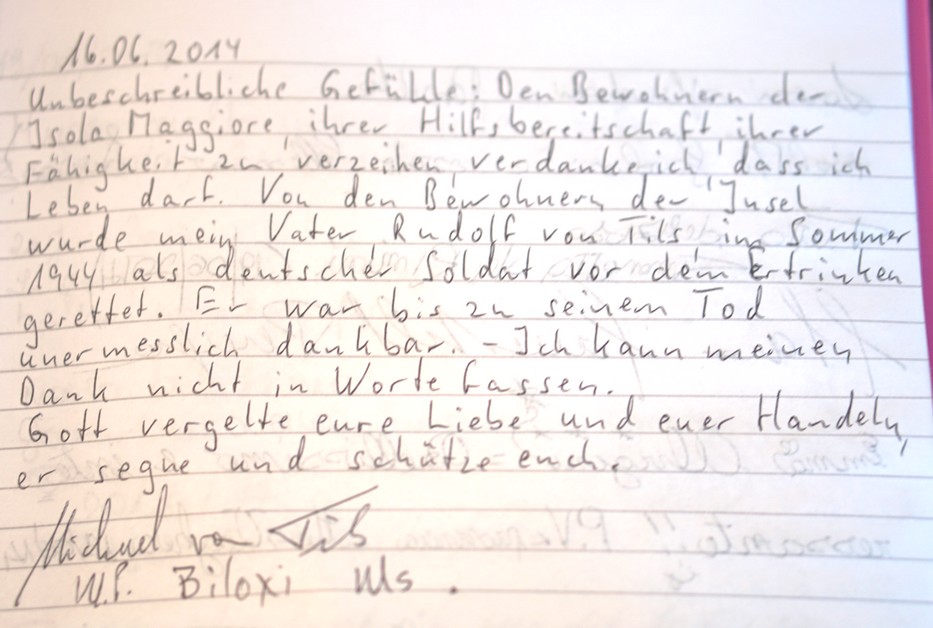 16.06.2014
Unbeschreibliche Gefühle: Den Bewohnern der
Isola Maggiore, ihrer Hilfsbereitschaft, ihrer
Fähigkeit zu verzeihen, verdanke ich, dass ich
Leben darf. Von den Bewohnern der Insel
wurde mein Vater Rudolf von Tils, im Sommer
1944 als deutscher Soldat vor dem Ertrinken
gerettet. Er war bis zu seinem Tod
unermesslich dankbar. - Ich kann meinen
Dank nicht in Worte fassen.
Gott vergelte eure Liebe und euer Handeln,
er segne und schütze euch.
Michael von Tils
Biloxi Ms.